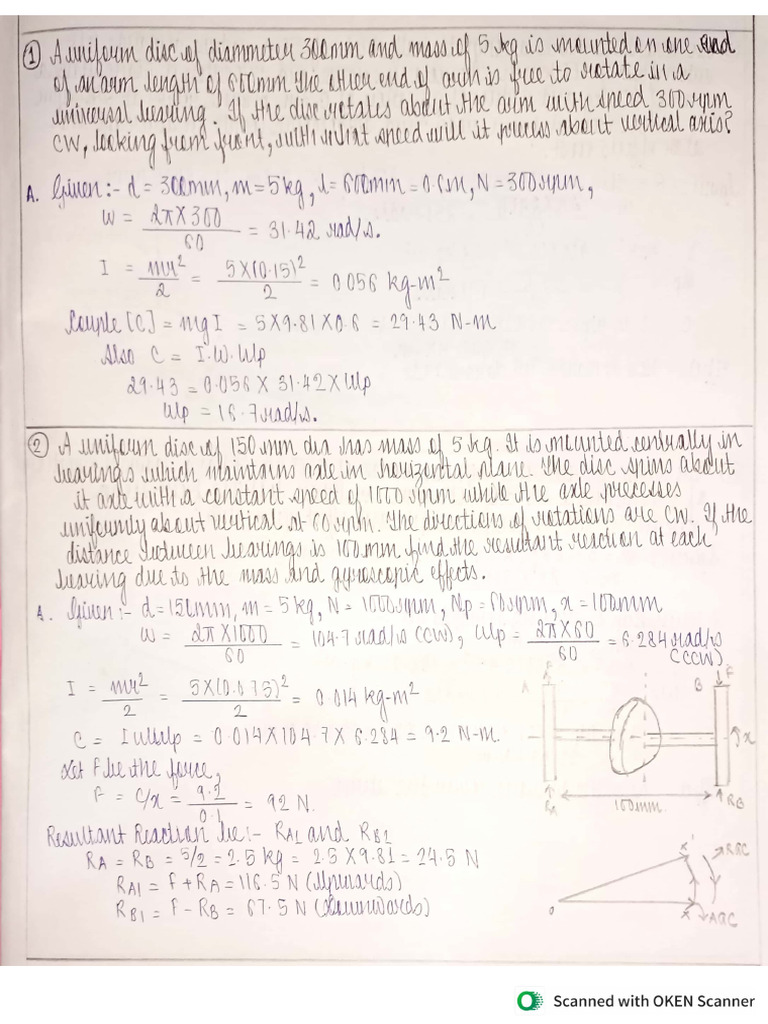 ① A uniform disc of diammeter 300mm and mass of 5 kg is mounted on one end
of an arm length of 600mm the other end of arm is free to rotate in a
universal bearing. If the disc rotates about the arm with speed 300 rpm
CW, looking from front, with what speed will it precess about vertical axis?
A. Given :- d = 300mm, m = 5 kg, l = 600mm = 0.6m, N = 300 rpm,
W = 2π X 300 / 60 = 31.42 rad/s.
I = mr² / 2 = 5 X (0.15)² / 2 = 0.056 kg-m²
Couple [C] = mg I = 5 X 9.81 X 0.6 = 29.43 N-m
Also C = I.W.Wp
29.43 = 0.056 X 31.42 X Wp
Wp = 16.7 rad/s.
② A uniform disc of 150 mm dia has mass of 5 kg. It is mounted centrally in
bearings which maintains axle in horizontal plane. The disc spins about
it axle with a constant speed of 1000 rpm while the axle precesses
uniformly about vertical at 60 rpm. The directions of rotations are CW. If the
distance between bearings is 100 mm find the resultant reaction at each
bearing due to the mass and gyroscopic effects.
A. Given :- d = 150mm, m = 5 kg, N = 1000 rpm, Np = 60 rpm, x = 100mm
W = 2π X 1000 / 60 = 104.7 rad/s (CW), Wp = 2π X 60 / 60 = 6.284 rad/s
(CCW)
I = mr² / 2 = 5 X (0.075)² / 2 = 0.014 kg-m²
C = I W Wp = 0.014 X 104.7 X 6.284 = 9.2 N-m.
Let F be the force,
F = C/x = 9.2 / 0.1 = 92 N.
Resultant Reaction be :- RA1 and RB1
RA = RB = 5/2 = 2.5 kg = 2.5 X 9.81 = 24.5 N
RA1 = F + RA = 116.5 N (Upwards)
RB1 = F - RB = 67.5 N (Downwards)
A
F
B
F
x
RA
100mm
RB
x'
RAC
o
x
AGC
Scanned with OKEN Scanner